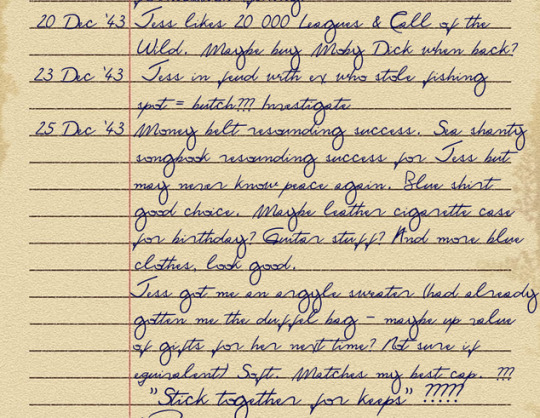 20 Dec '43 Jess likes 20 000 Leagues & Call of the
Wild. Maybe buy Moby Dick when back?
23 Dec '43 Jess in feud with ex who stole fishing
spot = butch??? Investigate
25 Dec '43 Money belt resounding success. Sea shanty
songbook resounding success for Jess but
may never know peace again. Blue shirt
good choice. Maybe leather cigarette case
for birthday? Guitar stuff? And more blue
clothes, look good.
Jess got me an argyle sweater (had already
gotten me the duffel bag - maybe up value
of gifts for her next time? Not sure if
equivalent) Soft. Matches my best cap. ???
"Stick together for keeps" ?????